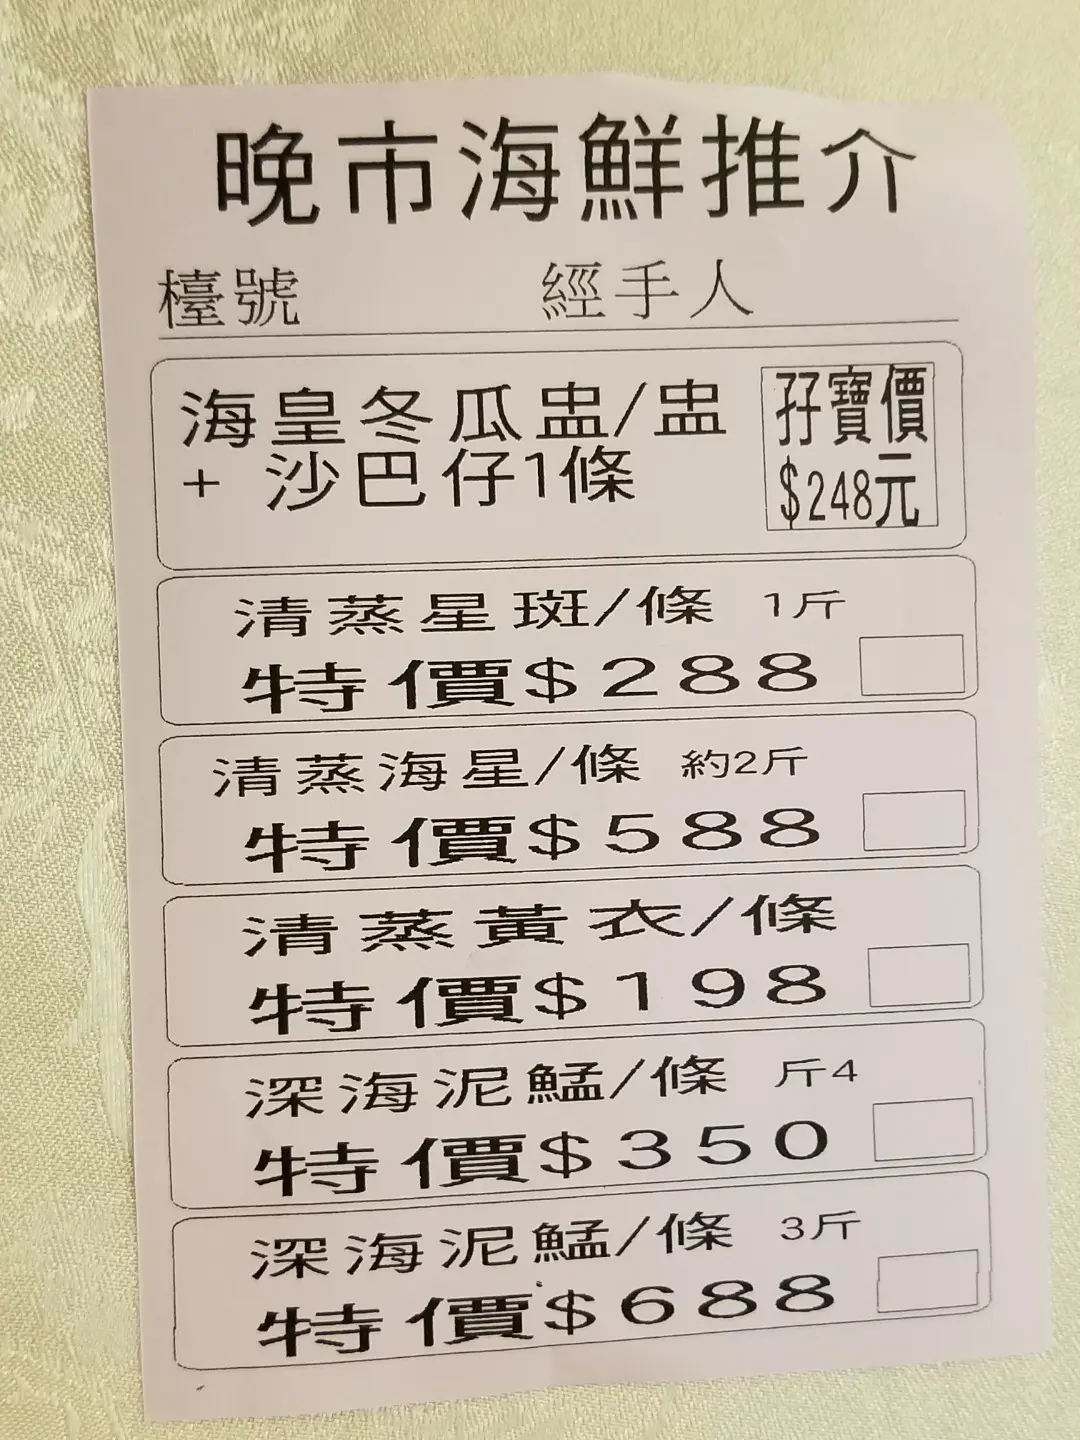 晚市海鮮推介
檯號 經手人
海皇冬瓜盅/盅
+ 沙巴仔1條
孖寶價
$248元
清蒸星斑/條 1斤
特價$288
清蒸海星/條 約2斤
特價$588
清蒸黃衣/條
特價$198
深海泥鯭/條 斤4
特價$350
深海泥鯭/條 3斤
特價$688